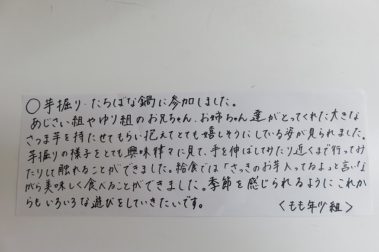 ○芋掘り・たちばな鍋に参加しました。
あじさい組やゆり組のお兄ちゃん、お姉ちゃん達がとってくれた大きな
さつま芋を持たせてもらい抱えてとても嬉しそうにしている姿が見られました。
芋掘りの様子をとても興味津々に見て、手を伸ばしてみたり近くまで行ってみ
たりして触れることができました。給食では「さっきのお芋入ってるよっと言いな
がら美味しく食べることができました。季節を感じられるようにこれか
らもいろいろな遊びをしていきたいです。
〈もも組〉